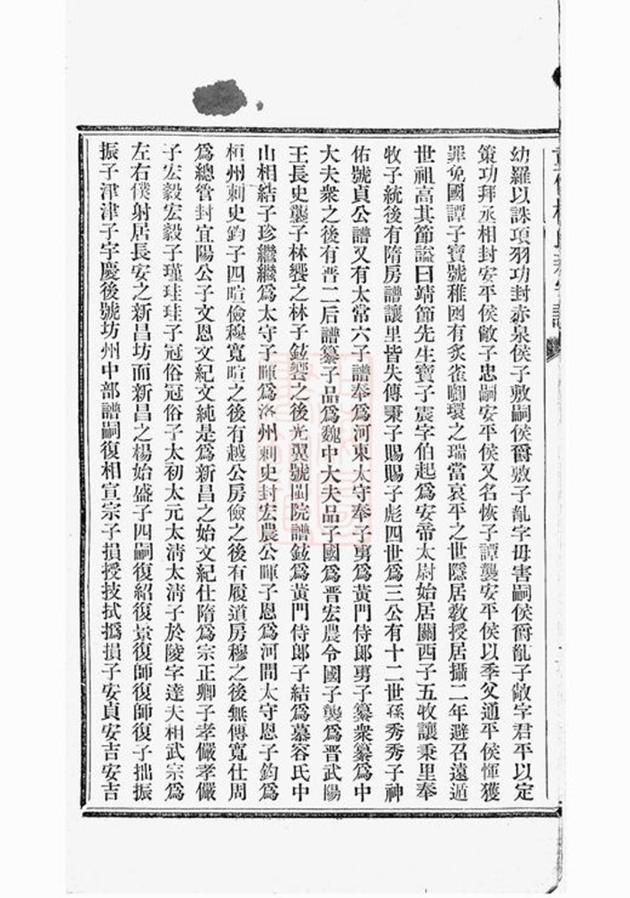 幼羅以誅項羽功封赤泉侯子敷嗣侯爵敷子亂字毋害嗣侯爵亂子敞字君平以定
策功拜丞相封安平侯敞子忠嗣安平侯又名恢子譚襲安平侯以季父通平侯惲獲
罪免國譚子寶號稚囦有炙雀啣環之瑞當哀平之世隱居敎授居攝二年避召遠遁
世祖高其節謚曰靖節先生寶子震字伯起爲安帝太尉始居關西子五牧讓秉里奉
牧子統後有隋房譜讓里皆失傳秉子賜賜子彪四世爲三公有十二世孫秀秀子神
佑號貞公譜又有太常六子譜奉爲河東太守奉子勇爲黃門侍郎勇子纂衆纂爲中
大夫衆之後有晋二后譜纂子品爲魏中大夫品子國爲晋宏農令國子襲爲晋武陽
王長史襲子林饗之林子鉉饗之後光翼號閩院譜鉉爲黃門侍郎子結爲慕容氏中
山相結子珍繼繼爲太守子暉爲洛州刺史封宏農公暉子恩爲河間太守恩子鈞爲
桓州刺史鈞子四暄儉穆寬暄之後有越公房儉之後有履道房穆之後無傳寬仕周
爲總管封宜陽公子文恩文紀文純是爲新昌之始文紀仕隋爲宗正卿子孝儼孝儼
子宏毅宏毅子瑾珪珪子冠俗冠俗子太初太元太清太清子於陵字達夫相武宗爲
左右僕射居長安之新昌坊而新昌之楊始盛子四嗣復紹復景復師復師復子拙振
振子津津子宇慶後號坊州中部譜嗣復相宣宗子損授技拭撝損子安貞安吉安吉